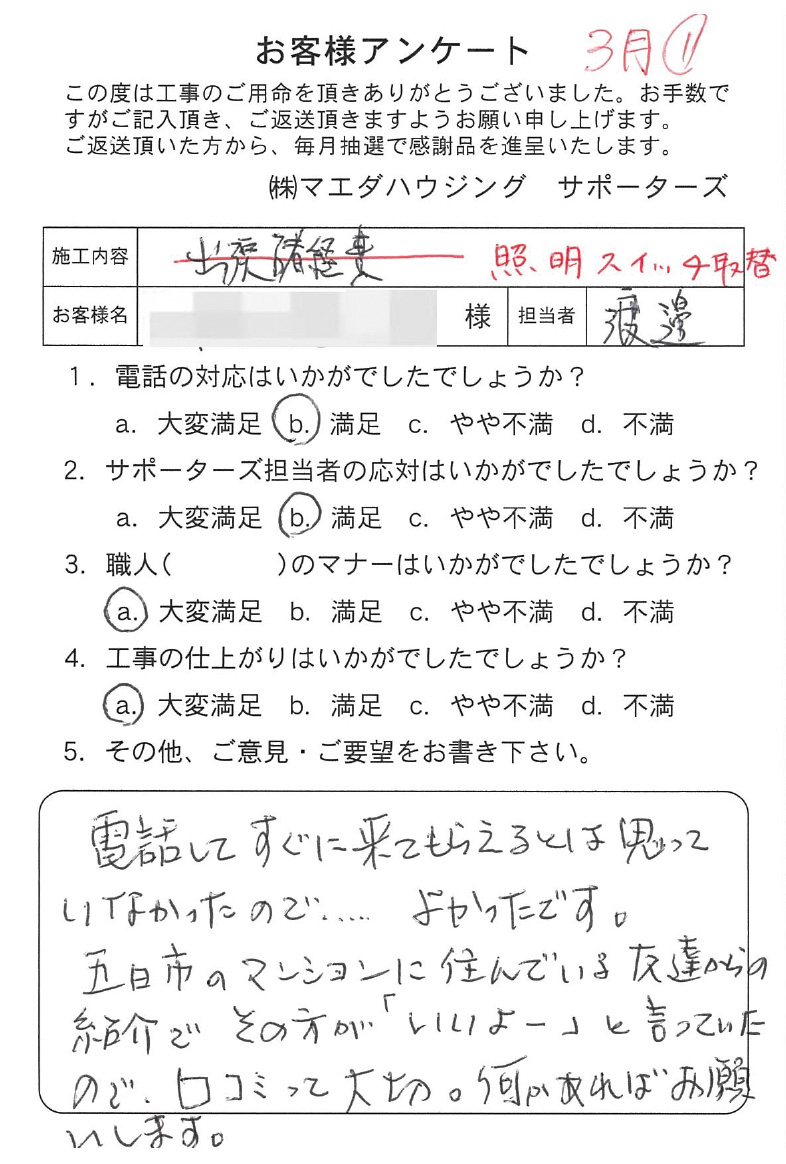 3月①
お客様アンケート
この度は工事のご用命を頂きありがとうございました。お手数で
すがご記入頂き、ご返送頂きますようお願い申し上げます。
ご返送頂いた方から、毎月抽選で感謝品を進呈いたします。
㈱マエダハウジング　サポーターズ
施工内容 出張諸経費 照明スイッチ取替
お客様名 様 担当者 渡邊
1. 電話の対応はいかがでしたでしょうか？
a. 大変満足 b. 満足 c. やや不満 d. 不満
2. サポーターズ担当者の応対はいかがでしたでしょうか？
a. 大変満足 b. 満足 c. やや不満 d. 不満
3. 職人(　　　　)のマナーはいかがでしたでしょうか？
a. 大変満足 b. 満足 c. やや不満 d. 不満
4. 工事の仕上がりはいかがでしたでしょうか？
a. 大変満足 b. 満足 c. やや不満 d. 不満
5. その他、ご意見・ご要望をお書き下さい。
電話してすぐに来てもらえるとは思って
いなかったので..... よかったです。
五日市のマンションに住んでいる友達からの
紹介でその方が「いいよー」と言っていた
ので、口コミって大切。何かあればお願
いします。